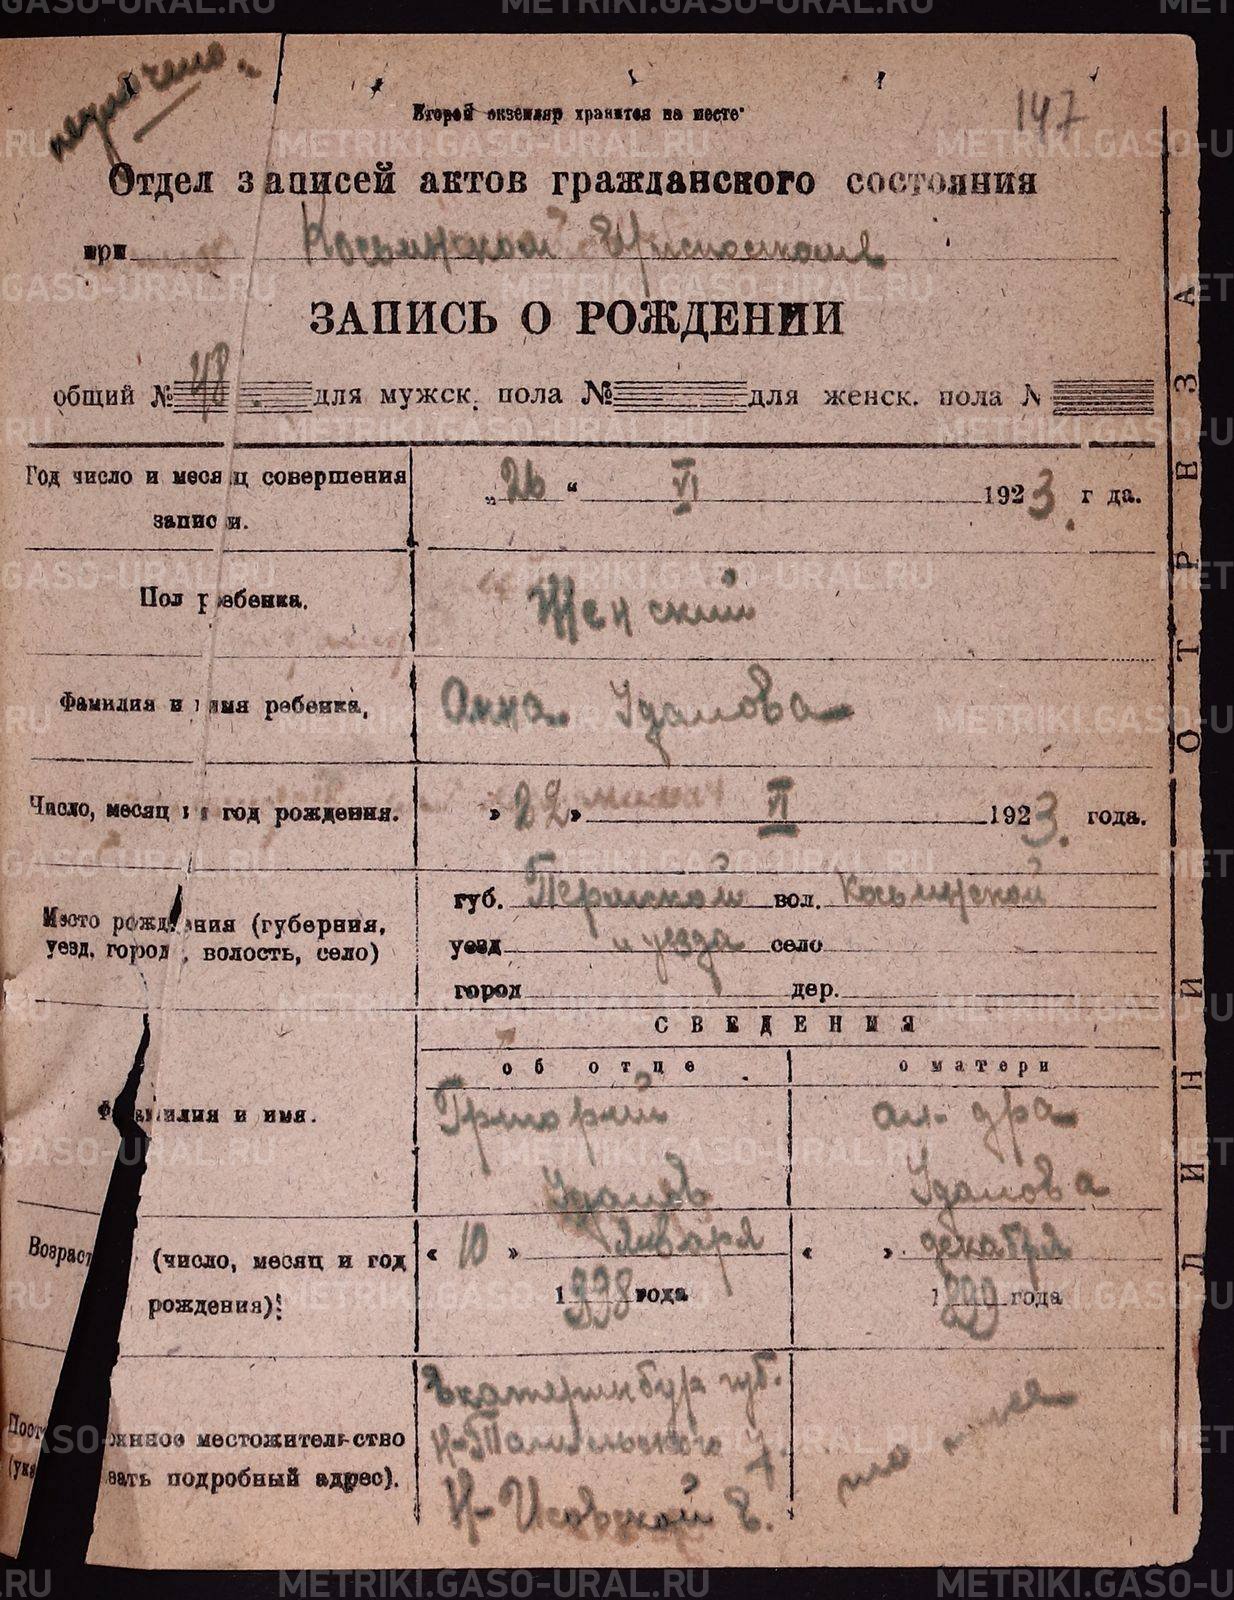 147
Второй экземляр хранится на месте
Отдел записей актов гражданского состояния
при Косьинском Исполкоме
ЗАПИСЬ О РОЖДЕНИИ
общий № 48. для мужск. пола № для женск. пола №
Год число и месяц совершения записи.
„26“ VI 1923. года.
Пол ребенка.
Женский
Фамилия и имя ребенка,
Анна
Число, месяц и год рождения.
»22» VI 1923. года.
Место рождения (губерния, уезд, город, волость, село)
губ. Пермской вол. Косьинской
уезд и уезда село
город дер.
СВЕДЕНИЯ
об отце
о матери
Фамилия и имя.
Григорий
Возраст (число, месяц и год рождения):
« 10 » января
1 года
« ». декабря
1899 года
Постоянное местожительство (указать подробный адрес).
Екатеринбур губ.
Н-Исовской
ДИНИЯ ОТРВЗА
METRIKI.GASO-URAL.RU